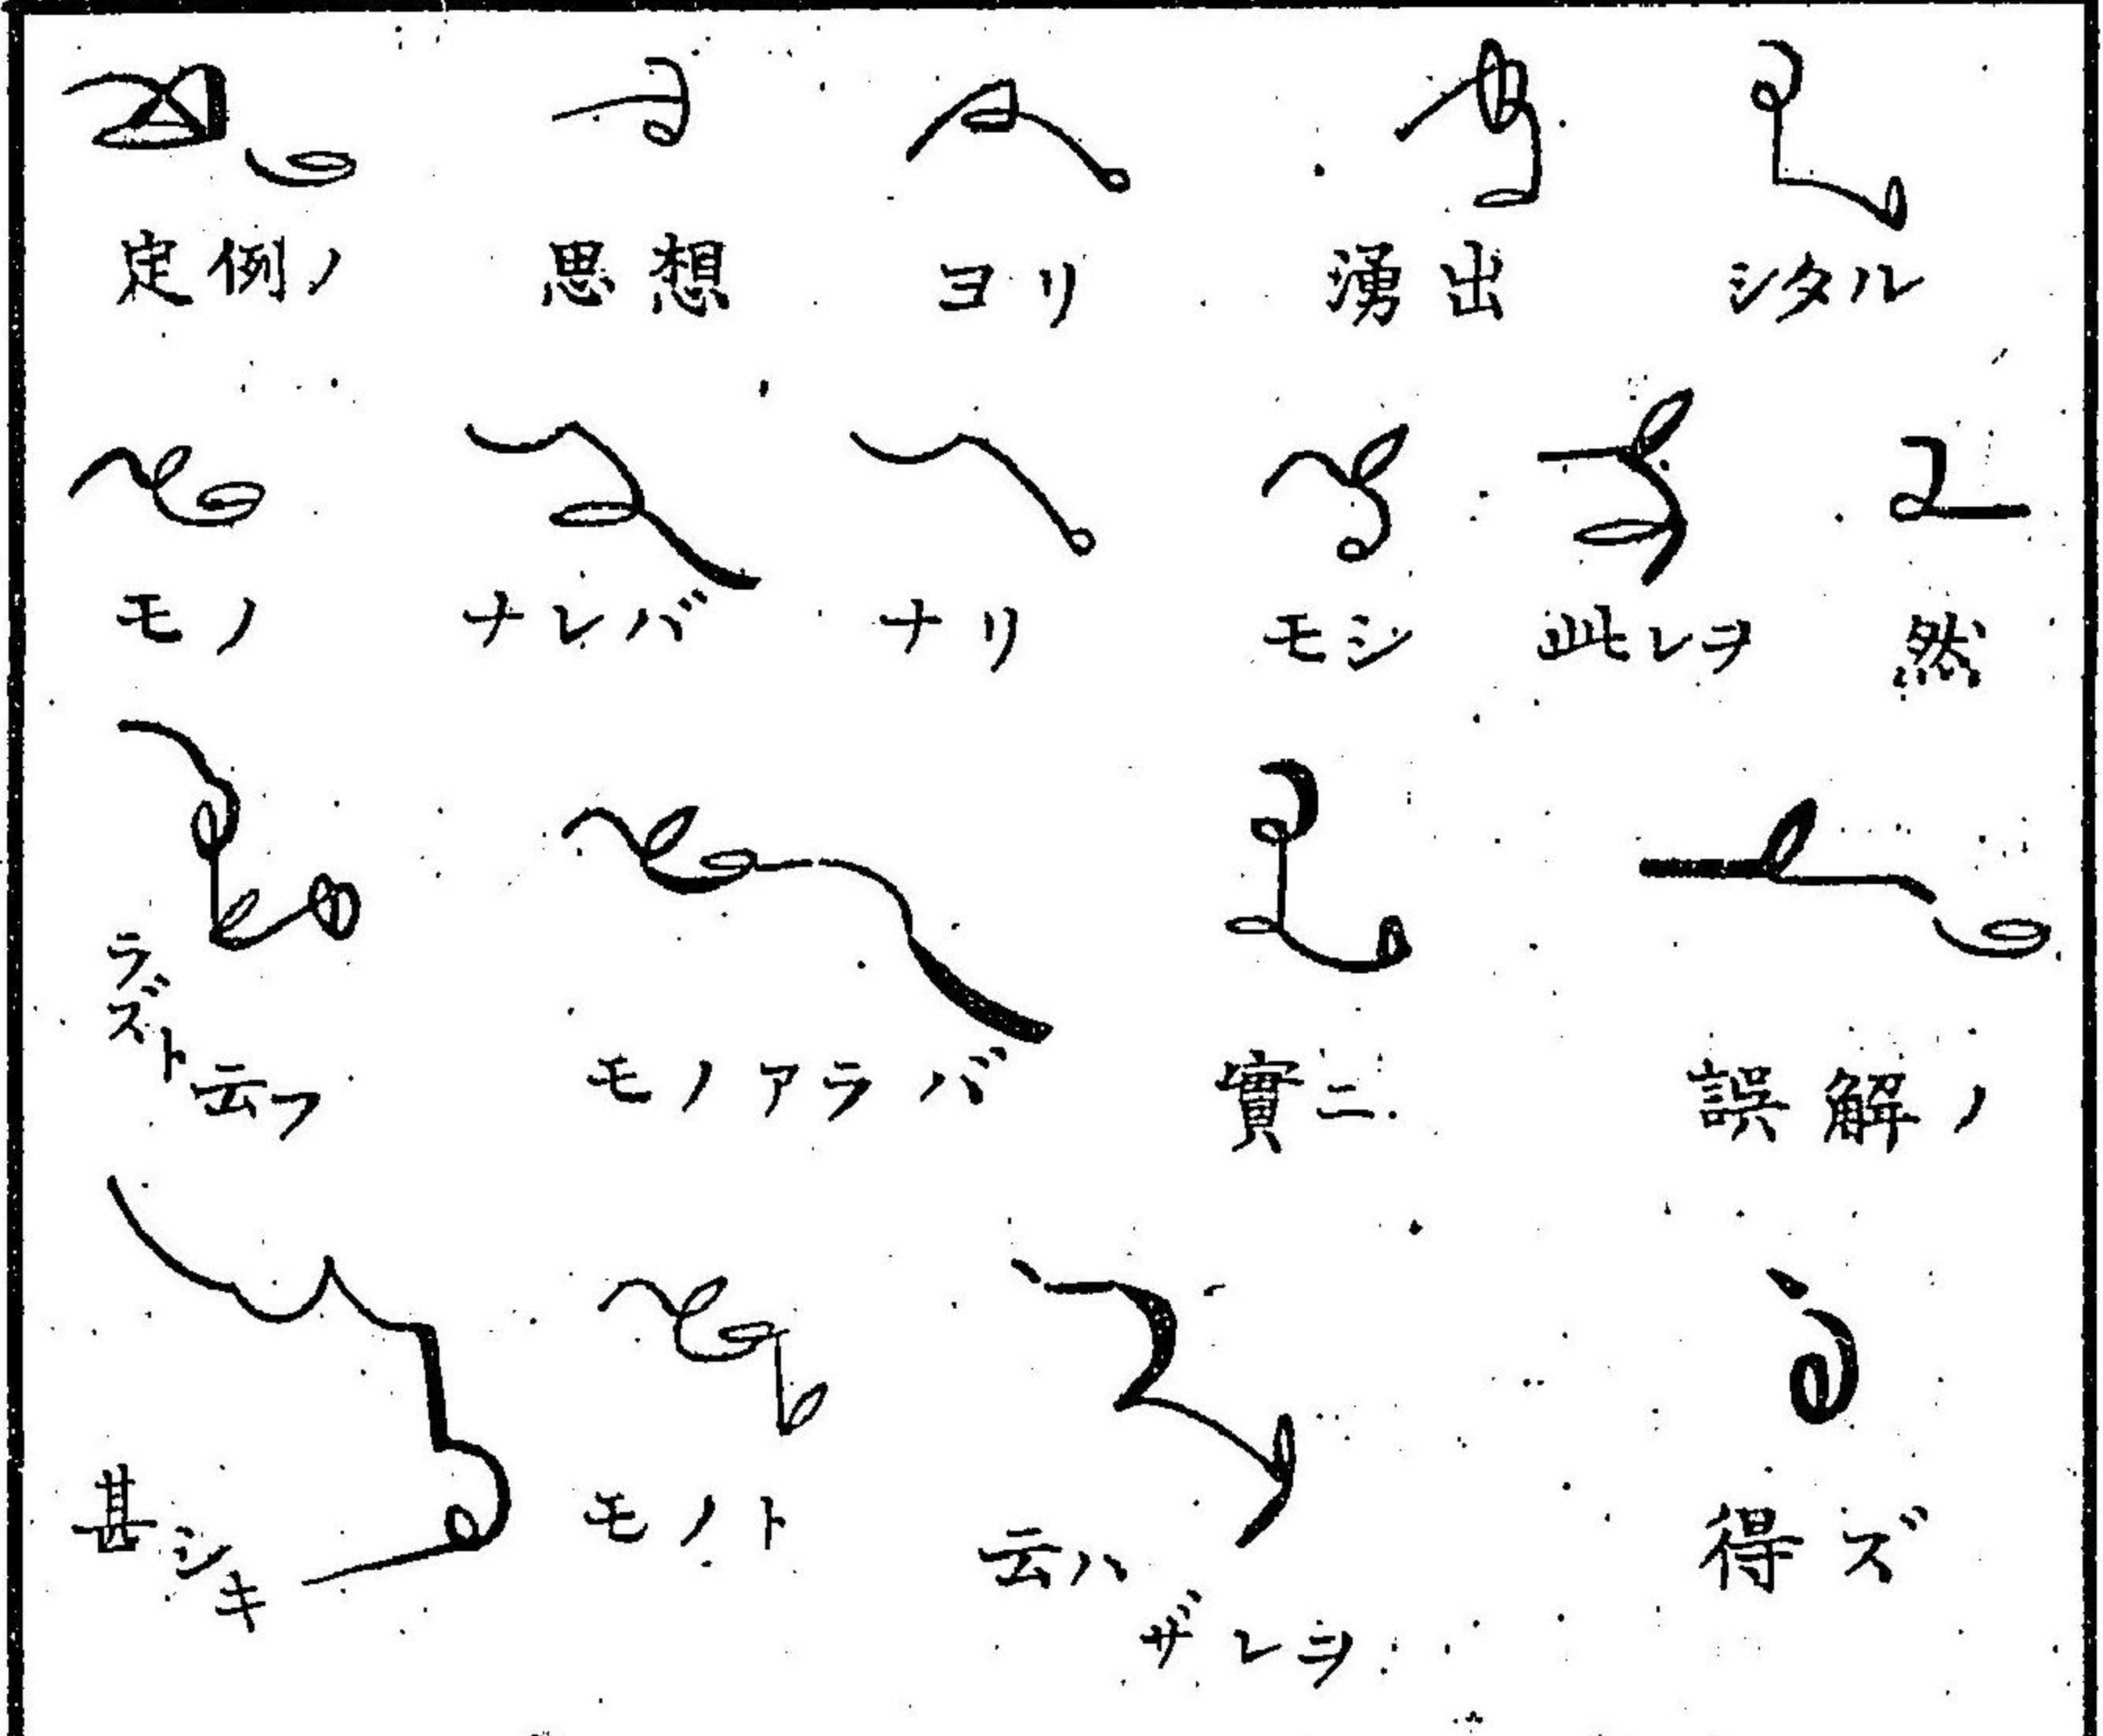 定例ノ 思想 ヨリ 湧出 シタル
モノ ナレバ ナリ モシ 此レヲ 然
ラズト云フ モノアラバ 實ニ 誤解ノ
甚シキ モノト 云ハザレヲ 得ズ